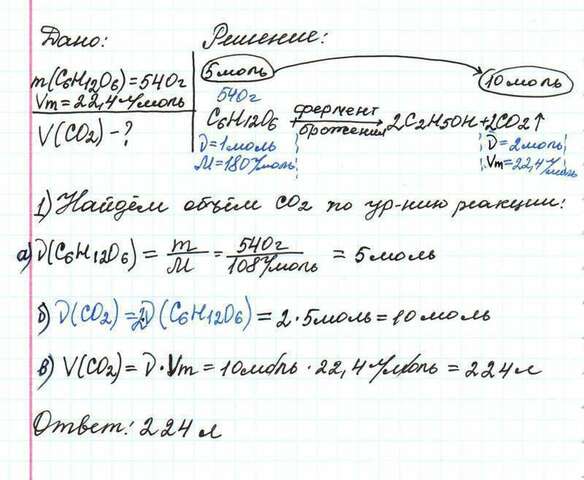 Дано:
m(C6H12O6)=540г
Vm=22,4л/моль
V(CO2)-?
Решение:
5моль 10моль
540г
C6H12O6 фермент брожения 2C2H5OH+2CO2↑
ν=1моль ν=2моль
M=180г/моль Vm=22,4л/моль
1) Найдём объём CO2 по ур-нию реакции:
а) ν(C6H12O6) = m/M = 540г/108г/моль = 5моль
б) ν(CO2)=2ν(C6H12O6) = 2·5моль=10моль
в) V(CO2)=ν·Vm=10моль·22,4л/моль=224л
Ответ: 224л